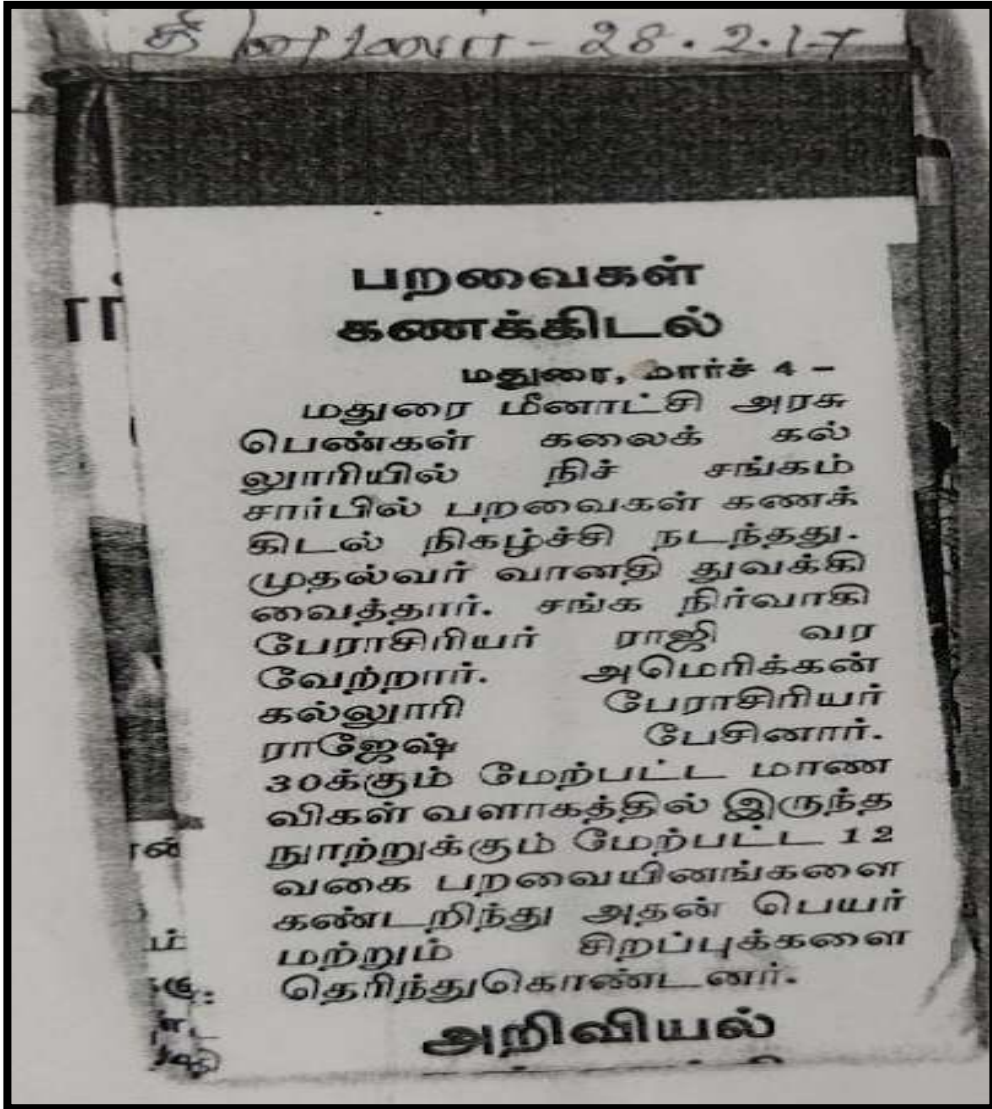 28.2.17
பறவைகள்
கணக்கிடல்
மதுரை, மார்ச் 4 –
மதுரை மீனாட்சி அரசு
பெண்கள் கலைக் கல்
லூரியில் நிச் சங்கம்
சார்பில் பறவைகள் கணக்
கிடல் நிகழ்ச்சி நடந்தது.
முதல்வர் வானதி துவக்கி
வைத்தார். சங்க நிர்வாகி
பேராசிரியர் ராஜி வர
வேற்றார். அமெரிக்கன்
கல்லூரி பேராசிரியர்
ராஜேஷ் பேசினார்.
30க்கும் மேற்பட்ட மாண
விகள் வளாகத்தில் இருந்த
நூற்றுக்கும் மேற்பட்ட 12
வகை பறவையினங்களை
கண்டறிந்து அதன் பெயர்
மற்றும் சிறப்புக்களை
தெரிந்துகொண்டனர்.
அறிவியல்